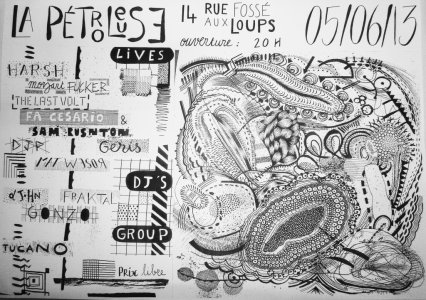 LA PÉTROLEUSE
14 RUE FOSSÉ
AUX LOUPS
ouverture : 20 H
05/06/13
LIVES
HARSH
morgart FUCKER
THE LAST VOLT
FA CESARIO
&
SAM RUSNTON
DJP Goris
DJ'S
FRAKTAL
GONZO
GROUP
TUCANO
Prix libre